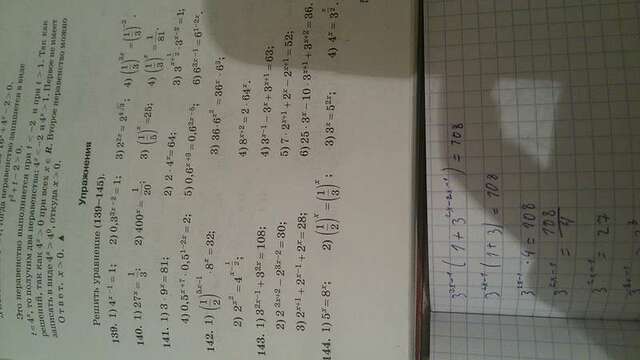 тогда неравенство запишется в виде
t² + t − 2 > 0.
Это неравенство выполняется при t < −2 и при t > 1. Так как
t = 4ˣ, то получим два неравенства: 4ˣ < −2 и 4ˣ > 1. Первое не имеет
решений, так как 4ˣ > 0 при всех x ∈ R. Второе неравенство можно
записать в виде 4ˣ > 4⁰, откуда x > 0.
Ответ. x > 0. ▲
Упражнения
Решить уравнение (139—145).
139. 1) 4ˣ⁻¹ = 1; 2) 0,3³ˣ⁻² = 1; 3) 2²ˣ = 2^(4√3); 4) (1/3)³ˣ = (1/3)⁻².
140. 1) 27ˣ = 1/3; 2) 400ˣ = 1/20; 3) (1/5)ˣ = 25; 4) (1/3)ˣ = 1/81.
141. 1) 3 · 9ˣ = 81; 2) 2 · 4ˣ = 64; 3) 3^(x+1/2) · 3ˣ⁻² = 1;
4) 0,5ˣ⁺⁷ · 0,5¹⁻²ˣ = 2; 5) 0,6ˣ · 0,6³ = 0,6²ˣ⁻⁵; 6) 6³ˣ⁻¹ = 6¹⁻²ˣ.
142. 1) (1/2)³ˣ⁻¹ · 8ˣ = 32; 3) 36 · 6^(x²) = 36ˣ · 6⁹;
2) 2^(x²) = 4^(x−1/2); 4) 8ˣ⁺² = 2 · 64ˣ.
143. 1) 3²ˣ⁻¹ + 3²ˣ = 108; 4) 3ˣ⁻¹ − 3ˣ + 3ˣ⁺¹ = 63;
2) 2³ˣ⁺² − 2³ˣ⁻² = 30; 5) 7 · 2ˣ⁺¹ + 2ˣ − 2ˣ⁺¹ = 52;
3) 2ˣ⁺¹ + 2ˣ⁻¹ + 2ˣ = 28; 6) 25 · 3ˣ − 10 · 3ˣ⁺¹ + 3ˣ⁺² = 36.
144. 1) 5ˣ = 8ˣ; 2) (1/2)ˣ = (1/3)ˣ; 3) 3ˣ = 5²ˣ; 4) 4ˣ = 3^(x/2).
3²ˣ⁻¹ (1 + 3²ˣ⁻²ˣ⁺¹) = 108
3²ˣ⁻¹ (1 + 3) = 108
3²ˣ⁻¹ · 4 = 108
3²ˣ⁻¹ = 108/4
3²ˣ⁻¹ = 27